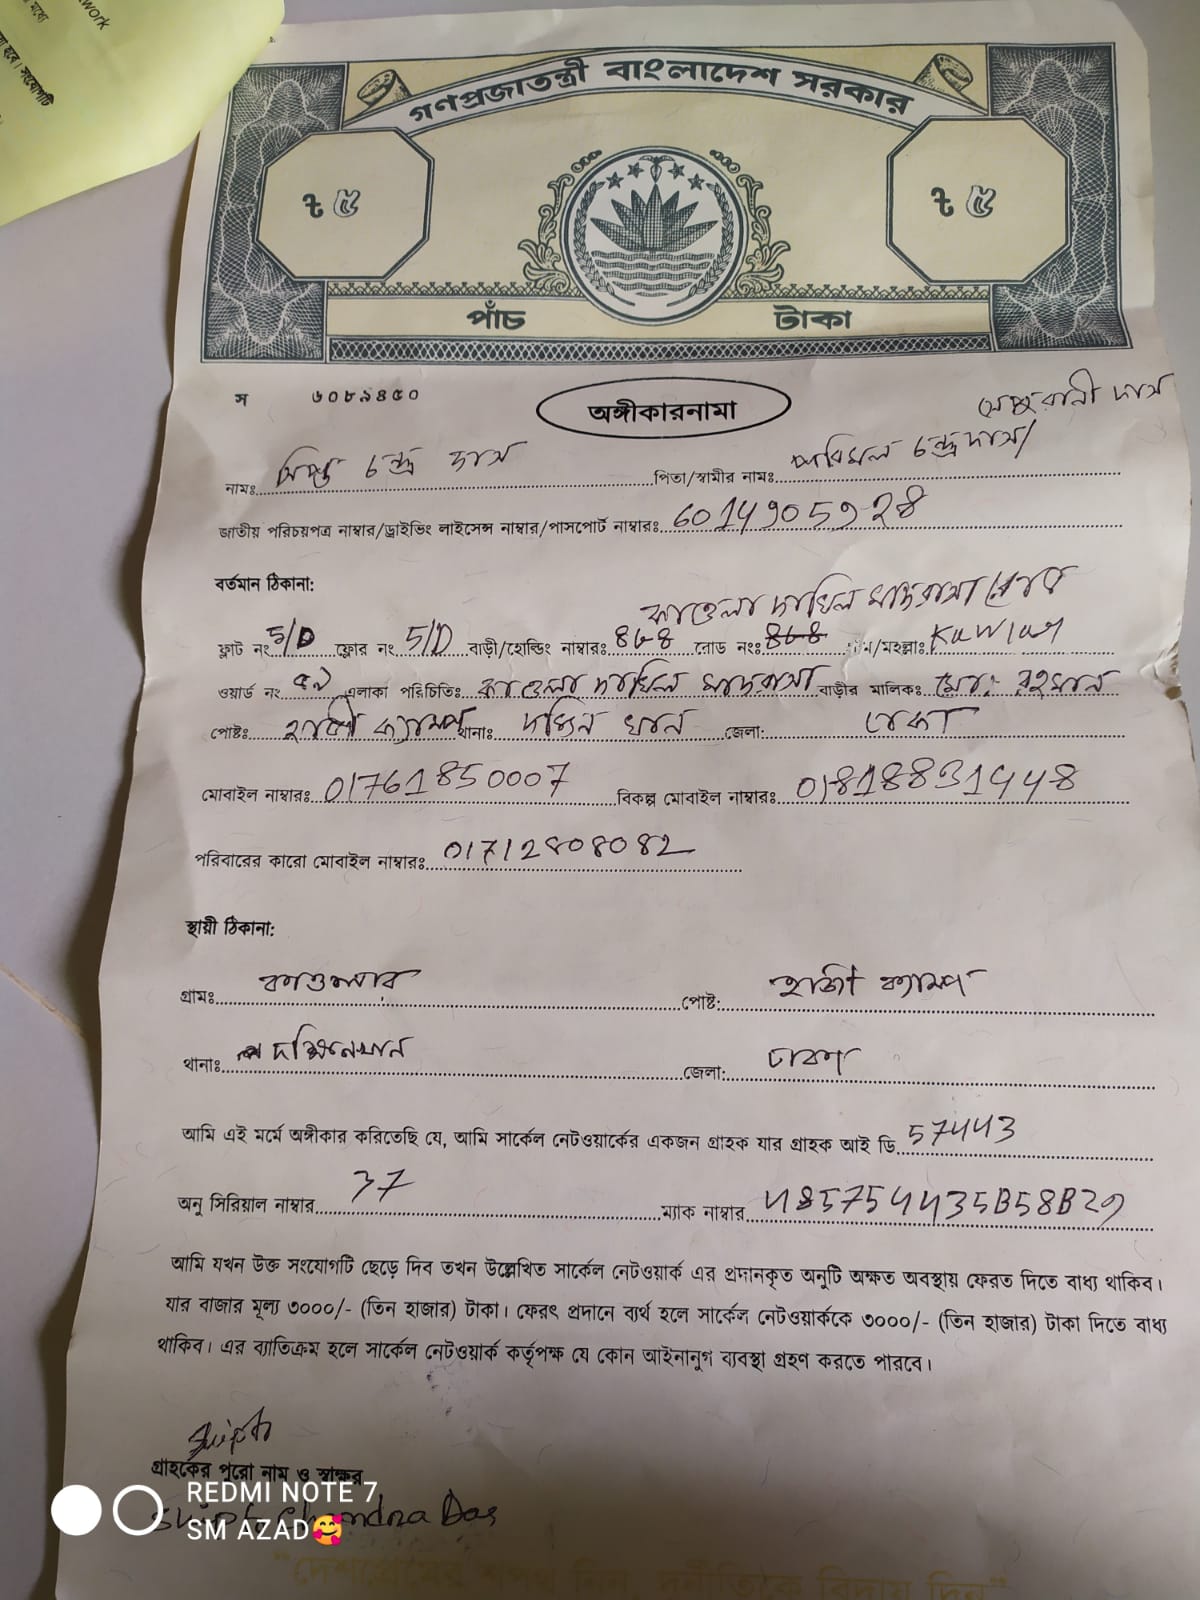 work
মধ্যে
হবে। সংযোগটি
গণপ্রজাতন্ত্রী বাংলাদেশ সরকার
৳ ৫ ৳ ৫
পাঁচ টাকা
স ৬০৮৯৪৫০
অঙ্গীকারনামা
রানী দাস
নামঃ চন্দ্র দাস পিতা/স্বামীর নামঃ পরিমল চন্দ্র দাস/
জাতীয় পরিচয়পত্র নাম্বার/ড্রাইভিং লাইসেন্স নাম্বার/পাসপোর্ট নাম্বারঃ
বর্তমান ঠিকানা:
কাওলা দাখিল মাদরাসা রোড
ফ্লাট নং 5/D ফ্লোর নং 5/D বাড়ী/হোল্ডিং নাম্বারঃ রোড নংঃ গ্রাম/মহল্লাঃ Kawlar
ওয়ার্ড নং এলাকা পরিচিতিঃ কাওলা দাখিল মাদরাসা বাড়ীর মালিকঃ মোঃ রহমান
পোষ্টঃ হাজী ক্যাম্প থানাঃ দক্ষিন খান জেলা: ঢাকা
মোবাইল নাম্বারঃ 01761850007 বিকল্প মোবাইল নাম্বারঃ 01818831448
পরিবারের কারো মোবাইল নাম্বারঃ 01712808082
স্থায়ী ঠিকানা:
গ্রামঃ কাওলার পোষ্ট: হাজী ক্যাম্প
থানাঃ দক্ষিনখান জেলা: ঢাকা
আমি এই মর্মে অঙ্গীকার করিতেছি যে, আমি সার্কেল নেটওয়ার্কের একজন গ্রাহক যার গ্রাহক আই ডি 57443
অনু সিরিয়াল নাম্বার 37 ম্যাক নাম্বার 485754435B58B29
আমি যখন উক্ত সংযোগটি ছেড়ে দিব তখন উল্লেখিত সার্কেল নেটওয়ার্ক এর প্রদানকৃত অনুটি অক্ষত অবস্থায় ফেরত দিতে বাধ্য থাকিব।
যার বাজার মূল্য ৩০০০/- (তিন হাজার) টাকা। ফেরৎ প্রদানে ব্যর্থ হলে সার্কেল নেটওয়ার্ককে ৩০০০/- (তিন হাজার) টাকা দিতে বাধ্য
থাকিব। এর ব্যতিক্রম হলে সার্কেল নেটওয়ার্ক কর্তৃপক্ষ যে কোন আইনানুগ ব্যবস্থা গ্রহণ করতে পারবে।
গ্রাহকের পুরো নাম ও স্বাক্ষর
Chandra Das
REDMI NOTE 7
SM AZAD
"দেশপ্রেমের শপথ নিন, দুর্নীতিকে বিদায় দিন"